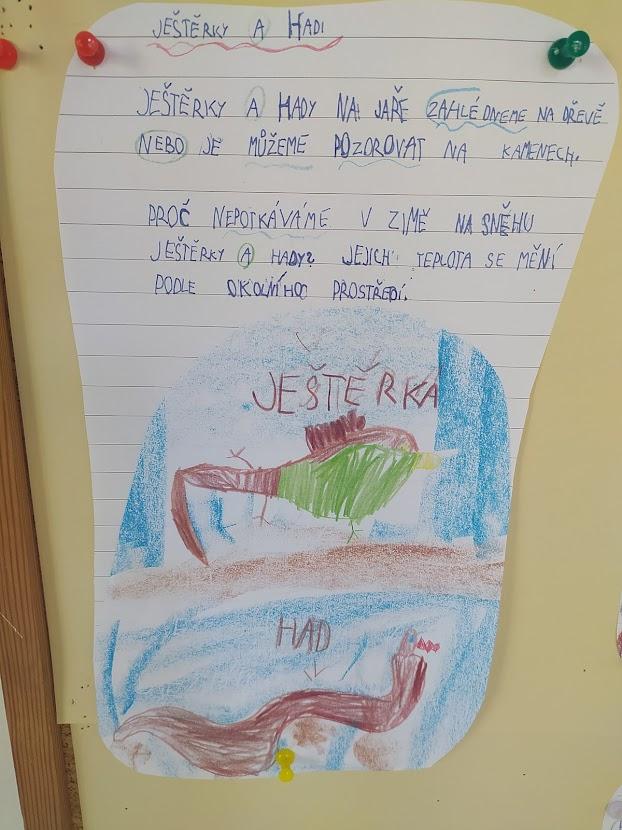 JEŠTĚRKY A HADI
JEŠTĚRKY A HADY NA JAŘE ZAHLÉDNEME NA DŘEVĚ
NEBO JE MŮŽEME POZOROVAT NA KAMENECH.
PROČ NEPOTKÁVÁME V ZIMĚ NA SNĚHU
JEŠTĚRKY A HADY? JEJICH TEPLOTA SE MĚNÍ
PODLE OKOLNÍHO PROSTŘEDÍ.
JEŠTĚRKA
HAD